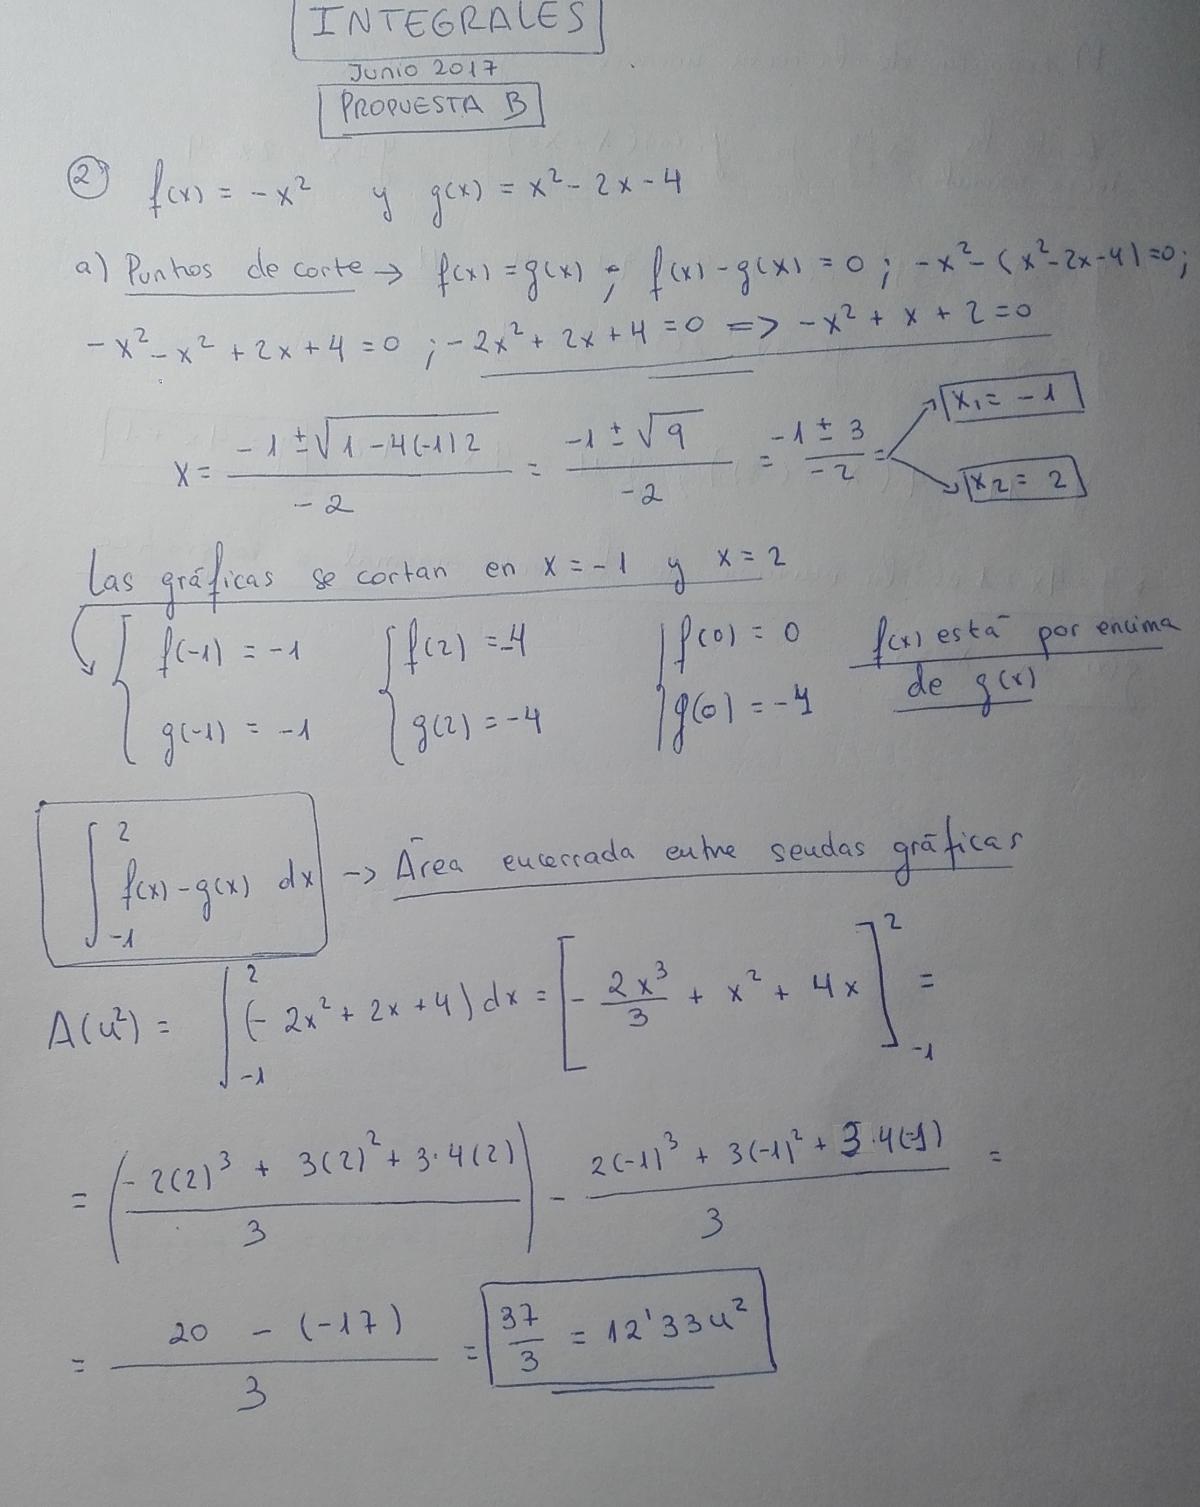 INTEGRALES
Junio 2017
PROPUESTA B
2) f(x) = -x² y g(x) = x² - 2x - 4
a) Puntos de corte → f(x) = g(x) ; f(x) - g(x) = 0 ; -x² - (x² - 2x - 4) = 0 ;
-x² - x² + 2x + 4 = 0 ; -2x² + 2x + 4 = 0 => -x² + x + 2 = 0
x = (-1 ± √(1 - 4(-1)2)) / -2 = (-1 ± √9) / -2 = (-1 ± 3) / -2 = x₁ = -1
x₂ = 2
Las gráficas se cortan en x = -1 y x = 2
f(-1) = -1 f(2) = -4 f(0) = 0 f(x) está por encima
g(-1) = -1 g(2) = -4 g(0) = -4 de g(x)
∫₋₁² f(x) - g(x) dx → Área encerrada entre sendas gráficas
A(u²) = ∫₋₁² (-2x² + 2x + 4) dx = [-2x³/3 + x² + 4x]₋₁² =
= ((-2(2)³ + 3(2)² + 3·4(2)) / 3) - (2(-1)³ + 3(-1)² + 3·4(-1)) / 3 =
= (20 - (-17)) / 3 = 37/3 = 12'33 u²